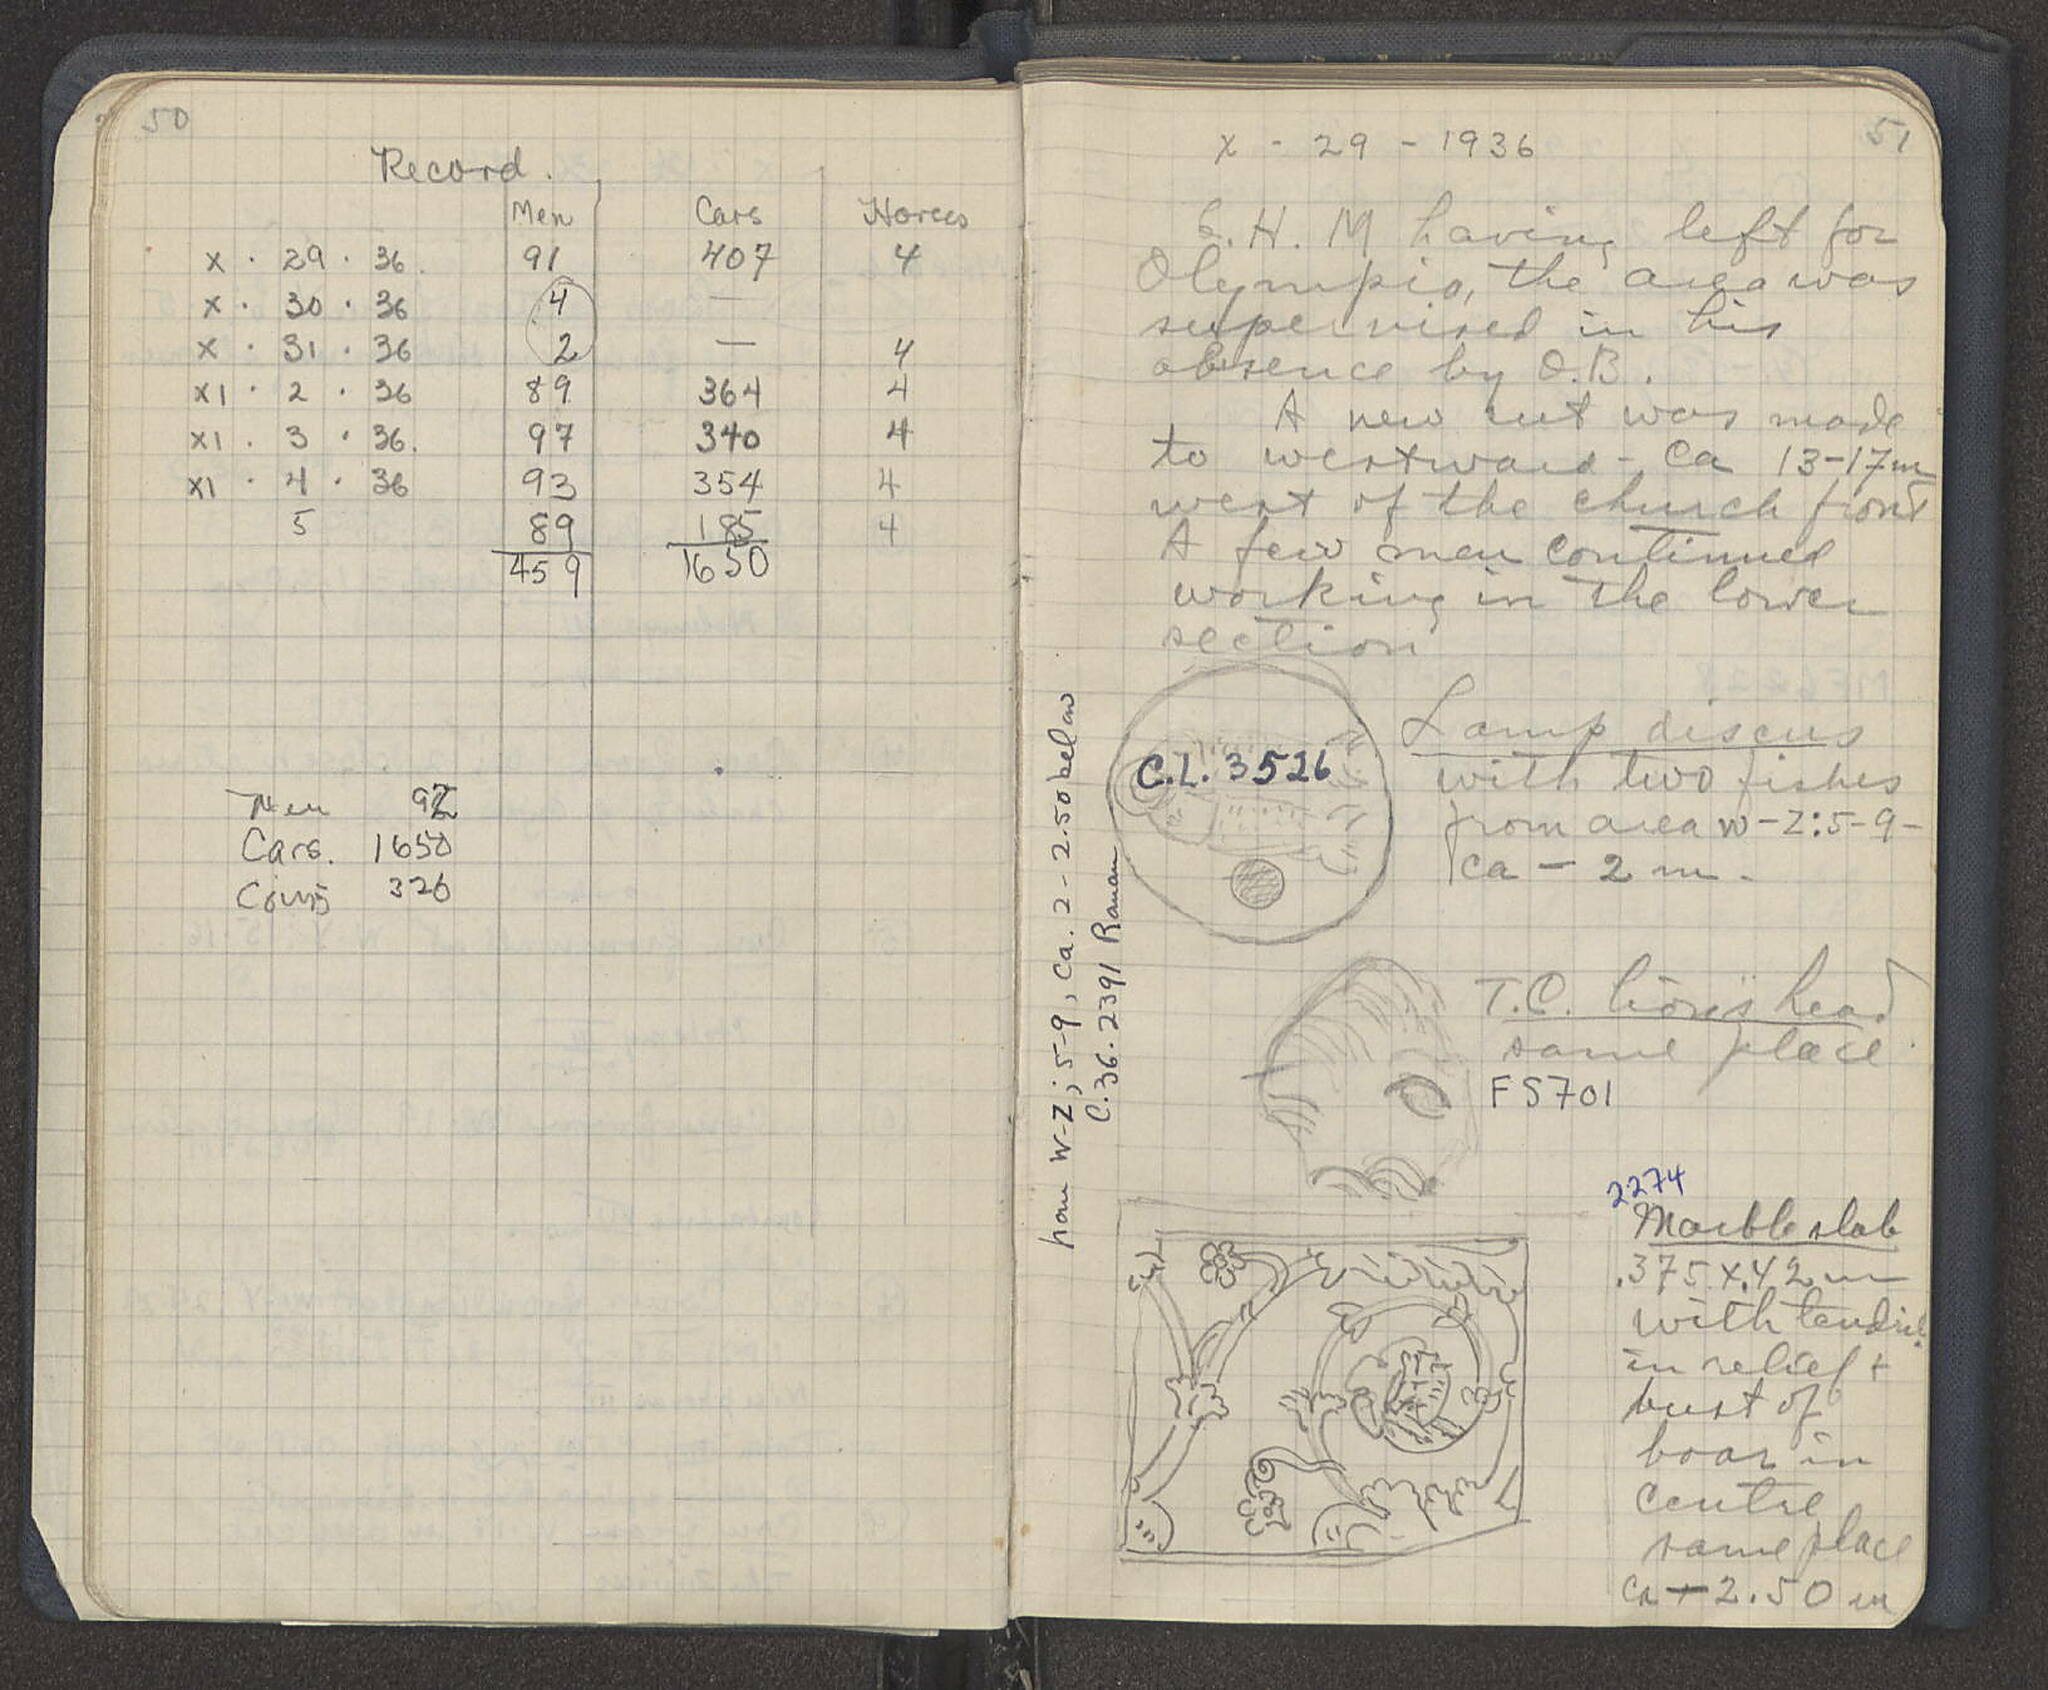 50
Record.
Men Cars Horces
x · 29 · 36. 91 407 4
x · 30 · 36 4 —
x · 31 · 36 2 — 4
x1 · 2 · 36 89 364 4
x1 · 3 · 36. 97 340 4
x1 · 4 · 36 93 354 4
5 89 185 4
459 1650
Men 92
Cars. 1650
Coins 326
51
x - 29 - 1936
G. H. M having left for
Olympia, the area was
supervised in his
absence by O.B.
A new cut was made
to westward - Ca 13-17m
west of the church front
A few men continued
working in the lower
section
C.L. 3526
Lamp discus
with two fishes
from area W-Z:5-9-
ca - 2 m.
from W-Z; 5-9, ca. 2 - 2.50 below
C. 36. 2391 Roman
T.C. lion's head
same place
FS701
2274
Marble slab
.375 x .42 m
with tendril
in relief +
bust of
boar in
centre
same place
Ca - 2.50 m